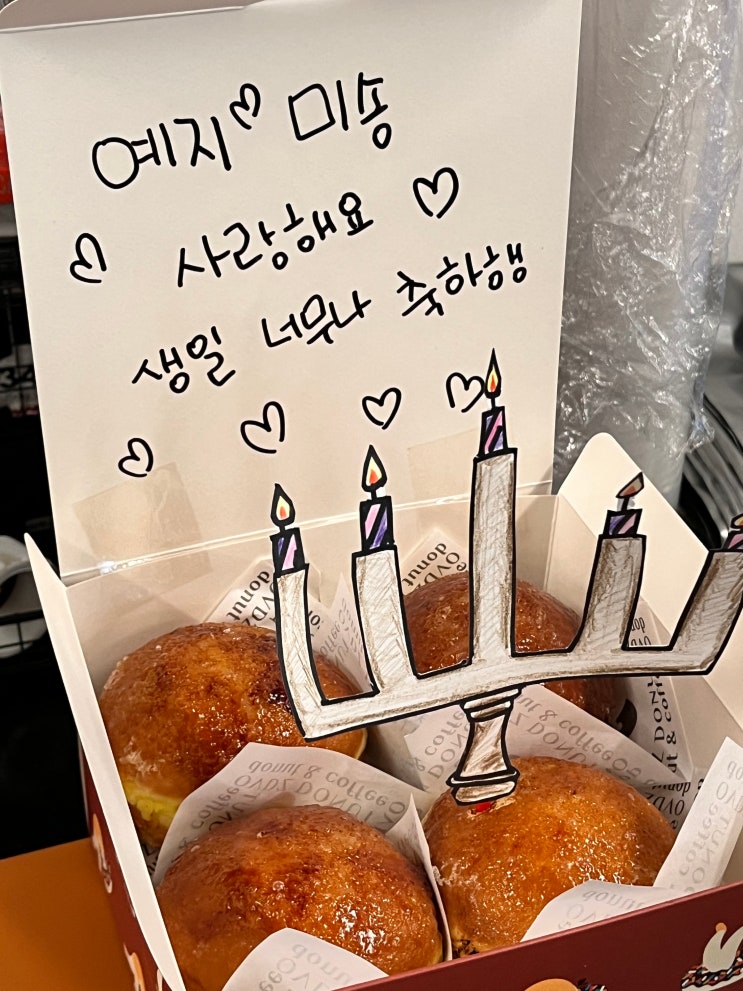 예지♡ 미송
♡ 사랑해요 ♡
생일 너무나 축하행
♡ ♡ ♡ ♡
donut
OVDZ
donut
donut & coffee
OVDZ DONUT
donut & coffee
OVDZ DONUT